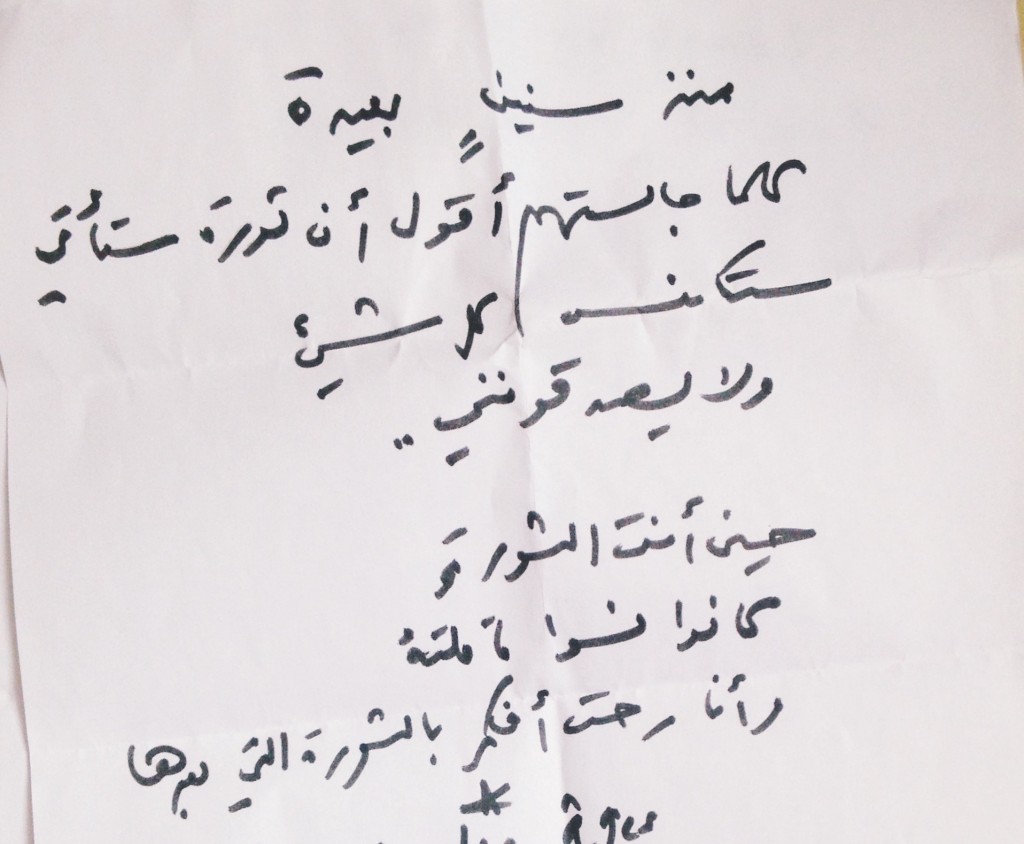 منذ سنينٍ بعيدة
كلما جالستهم أقول أن ثورة ستأتي
ستكنس كل شيئ
ولا يصدقونني ..
حين أتت الثورة
كانوا نسوا ما قلته
وأنا رحت أفكر بالثورة التي بعدها
*